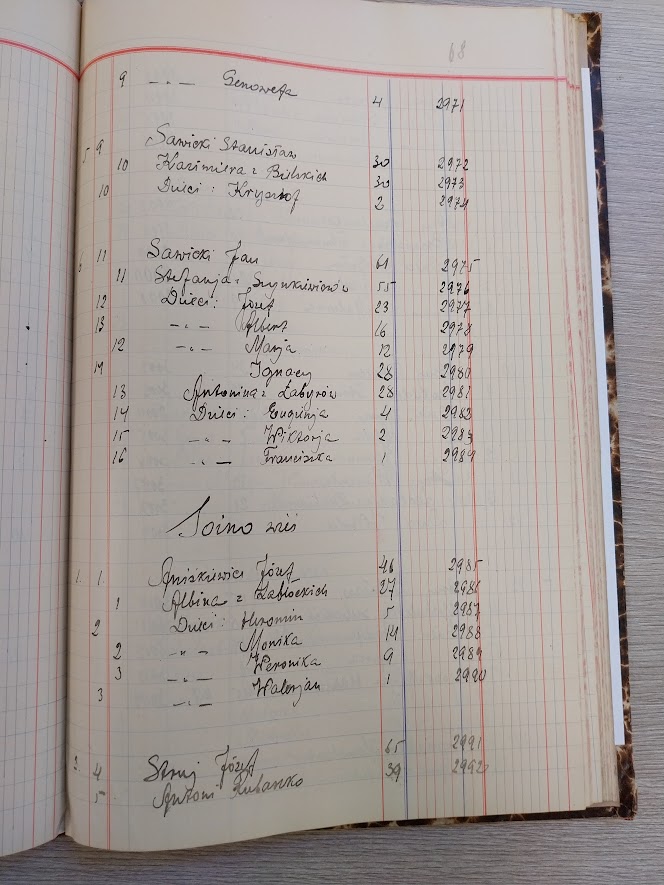 68
9 —„— Genowefa 4 2971
5 9 Sawicki Stanisław 30 2972
10 Kazimiera z Bielskich 30 2973
10 Dzieci: Krysztof 2 2974
6 11 Sawicki Jan 61 2975
11 Stefanja z Szynkiewiczów 55 2976
12 Dzieci: Józef 23 2977
13 —„— Albert 16 2978
12 —„— Marja 12 2979
14 Ignacy 28 2980
13 Antonina z Łabyrów 28 2981
14 Dzieci: Eugenja 4 2982
15 —„— Wiktorja 2 2983
16 —„— Franciszka 1 2984
Soino wieś
1. 1. Aniśkiewicz Józef 46 2985
1 Albina z Zabłockich 27 2986
2 Dzieci: Hieronim 5 2987
2 —„— Monika 14 2988
3 —„— Weronika 9 2989
3 —„— Walerjan 1 2990
2. 4 Struj Józef 65 2991
5 Antoni Kubaszko 39 2992